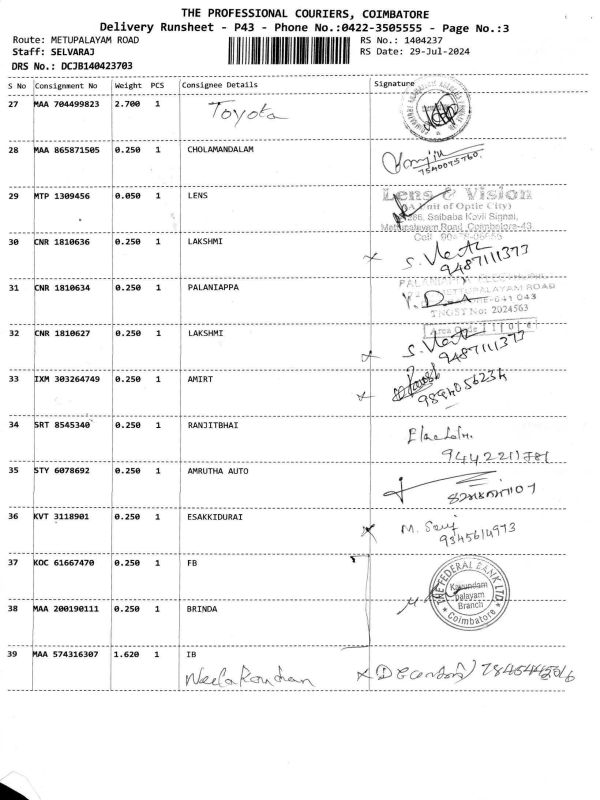 THE PROFESSIONAL COURIERS, COIMBATORE
Delivery Runsheet - P43 - Phone No.:0422-3505555 - Page No.:3
Route: METUPALAYAM ROAD RS No.: 1404237
Staff: SELVARAJ RS Date: 29-Jul-2024
DRS No.: DCJB140423703
S No Consignment No Weight PCS Consignee Details Signature
27 MAA 704499823 2.700 1 Toyota
28 MAA 865871505 0.250 1 CHOLAMANDALAM
7540075760
29 MTP 1309456 0.050 1 LENS
Lens & Vision
(A Unit of Optic City)
286, Saibaba Kovil Signal,
Mettupalayam Road, Coimbatore-43
Cell
30 CNR 1810636 0.250 1 LAKSHMI
9487111373
31 CNR 1810634 0.250 1 PALANIAPPA
METTUPALAYAM ROAD
641 043
TNGST No: 2024563
Area Code
32 CNR 1810627 0.250 1 LAKSHMI
9487111373
33 IXM 303264749 0.250 1 AMIRT
9894056234
34 SRT 8545340 0.250 1 RANJITBHAI
35 STY 6078692 0.250 1 AMRUTHA AUTO
36 KVT 3118901 0.250 1 ESAKKIDURAI
9345614973
37 KOC 61667470 0.250 1 FB
THE FEDERAL BANK LTD.
Kavundam
palayam
Branch
* Coimbatore *
38 MAA 200190111 0.250 1 BRINDA
39 MAA 574316307 1.620 1 IB
Neelakandan